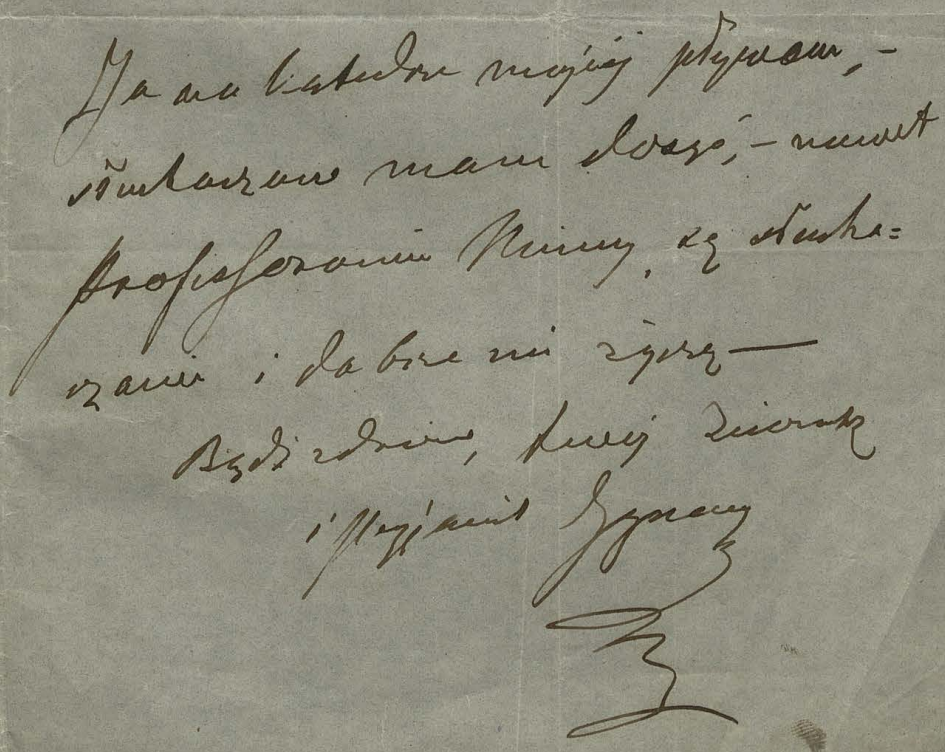 Ja na katedrze mojéj pływam, –
słuchaczow mam dosyć, – nawet
Professorowie Niemcy są słucha=
czami i dobrze mi życzą —
Bądź zdrow, twój
i przyjaciel Ignacy